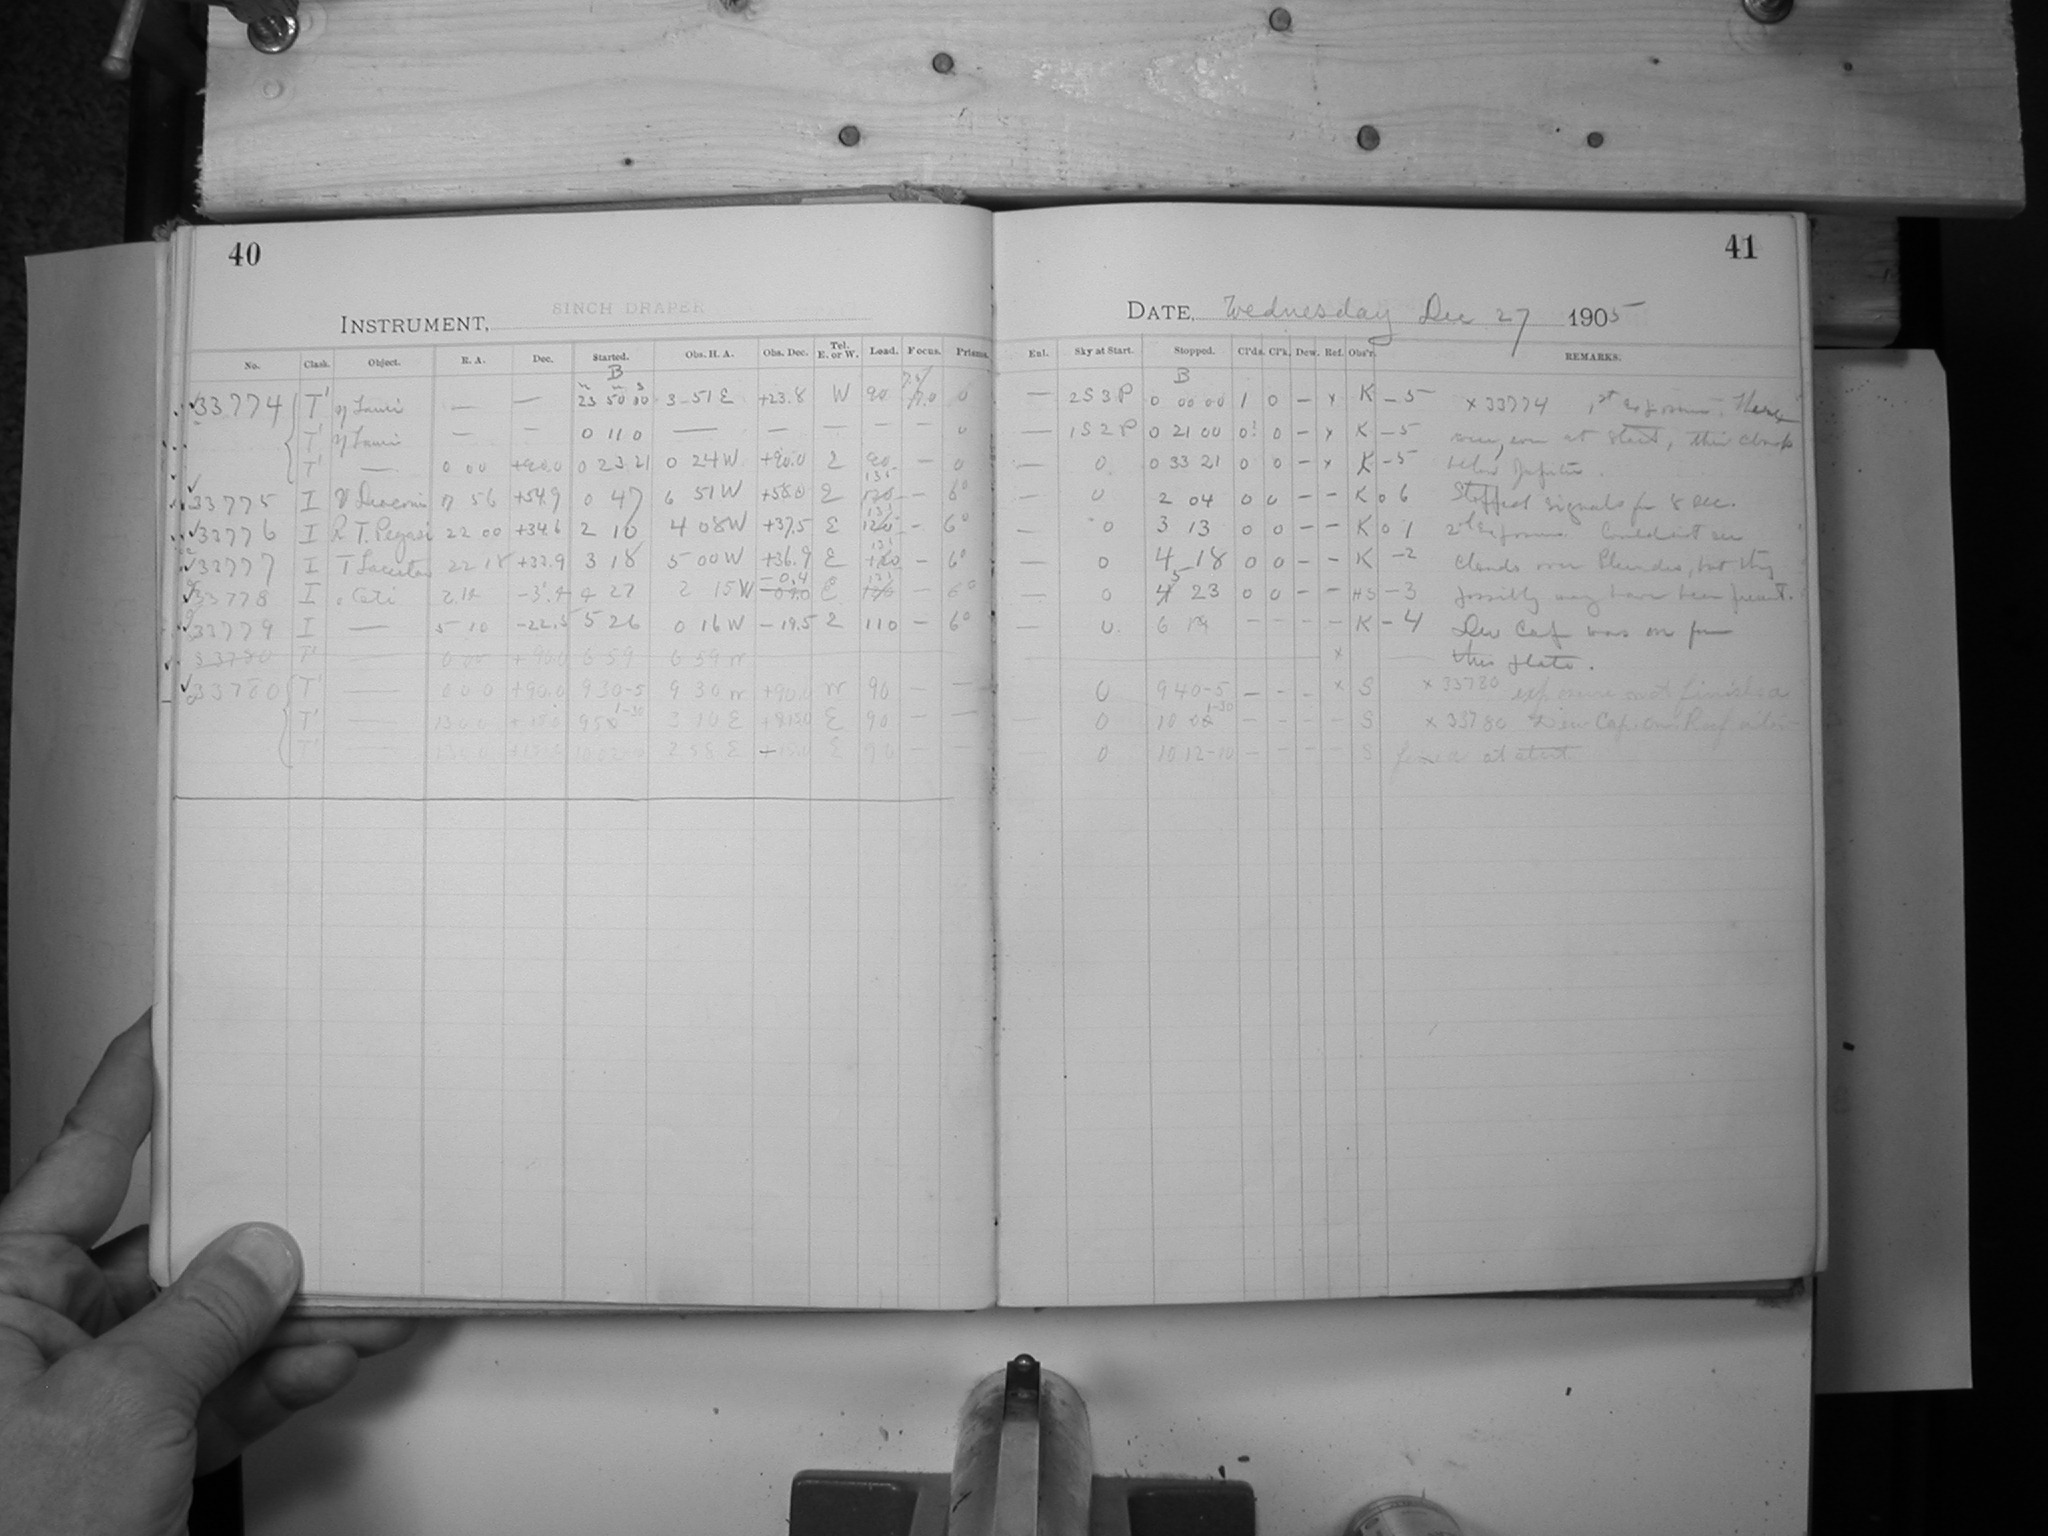 40
41
INSTRUMENT, 8INCH DRAPER
DATE, Wednesday Dec 27 1905
No. Class. Object. R. A. Dec. Started. Obs. H. A. Obs. Dec. Tel. E. or W. Lead. Focus. Prisms.
Enl. Sky at Start. Stopped. Cl'ds. Cl'k. Dew. Ref. Obs'r. REMARKS.
B
B
33774 T' η Tauri — — 23 50 00 3 51 E +23.8 W 90 0
— 2S3P 0 00 00 1 0 — x K —5 x 33774 1st exposure. There
T' η Tauri — — 0 11 0 — — — — — 0
— 1S2P 0 21 00 0 — x K —5 were at start, thin clouds
T' — 0 00 +90.0 0 23 21 0 24 W +90.0 E 90 — 0
— 0 0 33 21 0 0 — x K —5 below Jupiter.
33775 I Draconis 17 56 +54.9 0 47 6 51 W +58.0 E 135 — 6°
— 0 2 04 0 0 — — K 0 6 Stopped signals for 8 sec.
33776 I R T. Pegasi 22 00 +34.6 2 10 4 08 W +37.5 E 120 — 6°
— 0 3 13 0 0 — — K 0 1 2d exposure. Couldn't see
33777 I T Lacertae 22 18 +33.9 3 18 5 00 W +36.9 E — 6°
— 0 4 18 0 0 — — K —2 clouds over Pleiades, but they
33778 I o Ceti 2 14 —3.4 4 27 2 15 W —0.4 E — 6°
— 0 5 23 0 0 — — HS —3 possibly may have been present.
33779 I — 5 10 —22.5 5 26 0 16 W —19.5 E 110 — 6°
— 0 6 19 — — — — K —4 Dew Cap was on for
33780 T' — 0 00 +90.0 6 59 6 59 W
x — this plate.
33780 T' — 0 0 0 +90.0 9 30-5 9 30 W +90.0 W 90 — —
0 9 40-5 — — — x S x 33780 exposure not finished
T' — 13 0 0 9 50 1-30 3 10 E E 90 — —
0 10 00 1-30 — — — — S x 33780 Dew Cap on. Roof
T' — 13 0 0 10 02 2 58 E E 90 — —
0 10 12-10 — — — — S at start